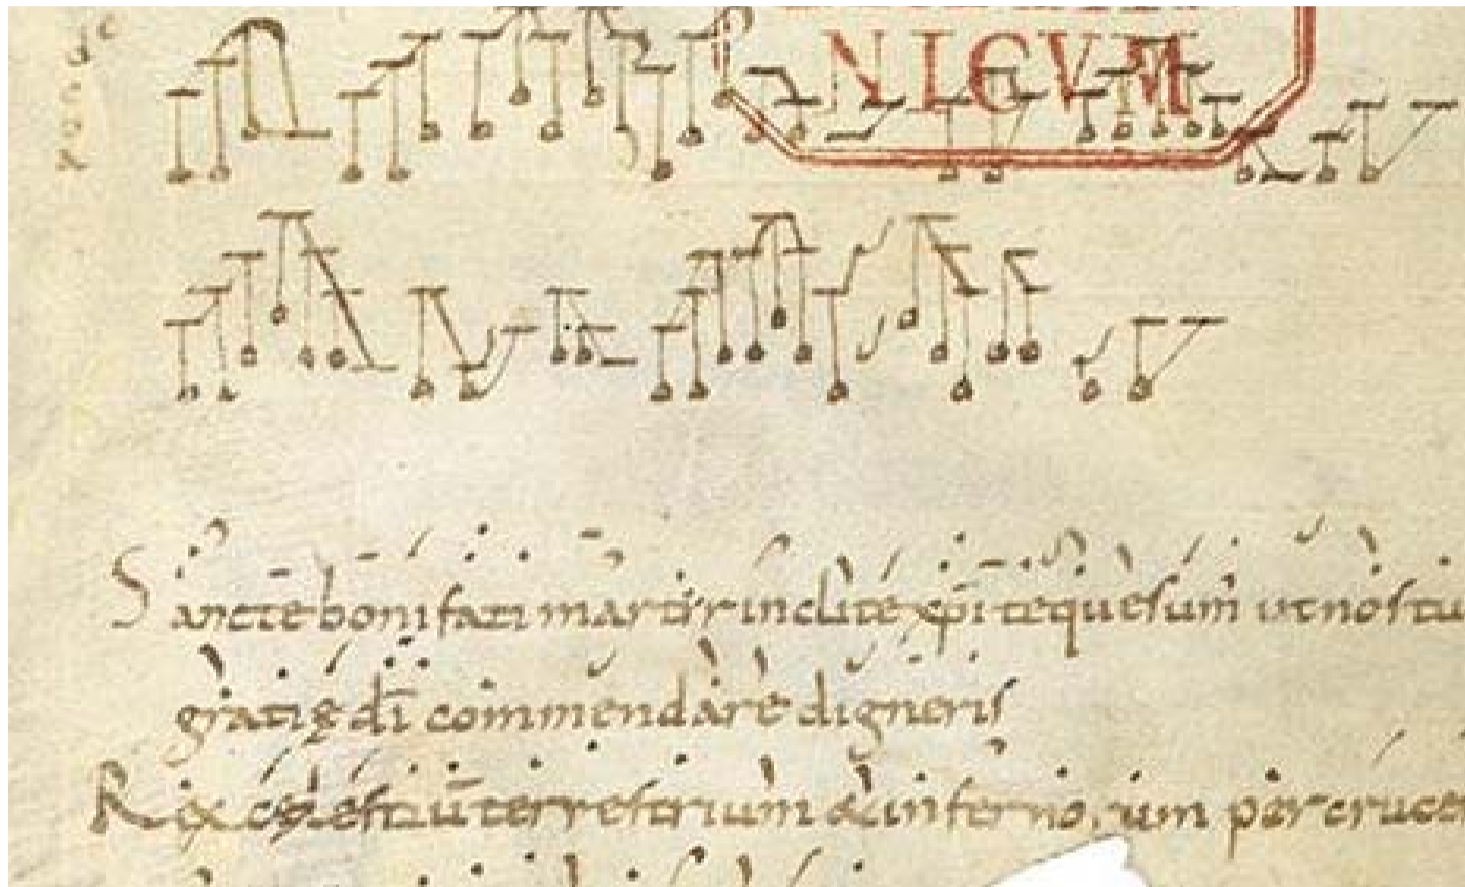 NICVM
Sancte bonifati martir inclite xp̄i te quesum̄ ut nos tu
gratię dī commendare digneris
Rex celestiū terrestrium & infernorum per cruce